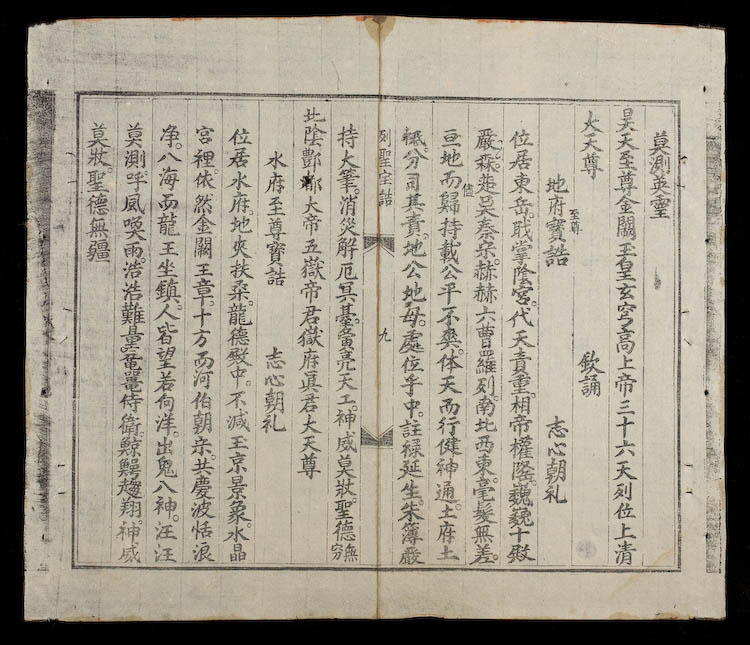 莫測英霊
昊天至尊金闕玉皇玄穹高上帝三十六天列位上清
大天尊 欽誦
地府至尊寶誥 志心朝礼
位居東岳。職掌陰宮。代天責重。相帝權隆。巍巍十殿
嚴森。赫赫六曹羅列。南北西東。毫髮無差。
亘地而歸持載公平不爽。体天而行健神通。土府土
祗。分司其責。地公地母。處位乎中。註祿延生。朱簿嚴
列聖宝誥
九
持大筆消災解厄冥臺寅亮天工。神威莫狀。聖德無窮
北陰酆都大帝五嶽帝君嶽府眞君大天尊
水府至尊寶誥 志心朝礼
位居水府。地夾扶桑。龍德殿中。不減玉京景象。水晶
宮裡。依然金闕王章。十方而河伯朝宗。共慶波恬浪
净。八海而龍王坐鎮。人皆望若向洋。出鬼八神。汪汪
莫測呼風喚雨。浩浩難量。黿鼉侍衛。鯨鰐趨翔。神威
莫狀。聖德無疆